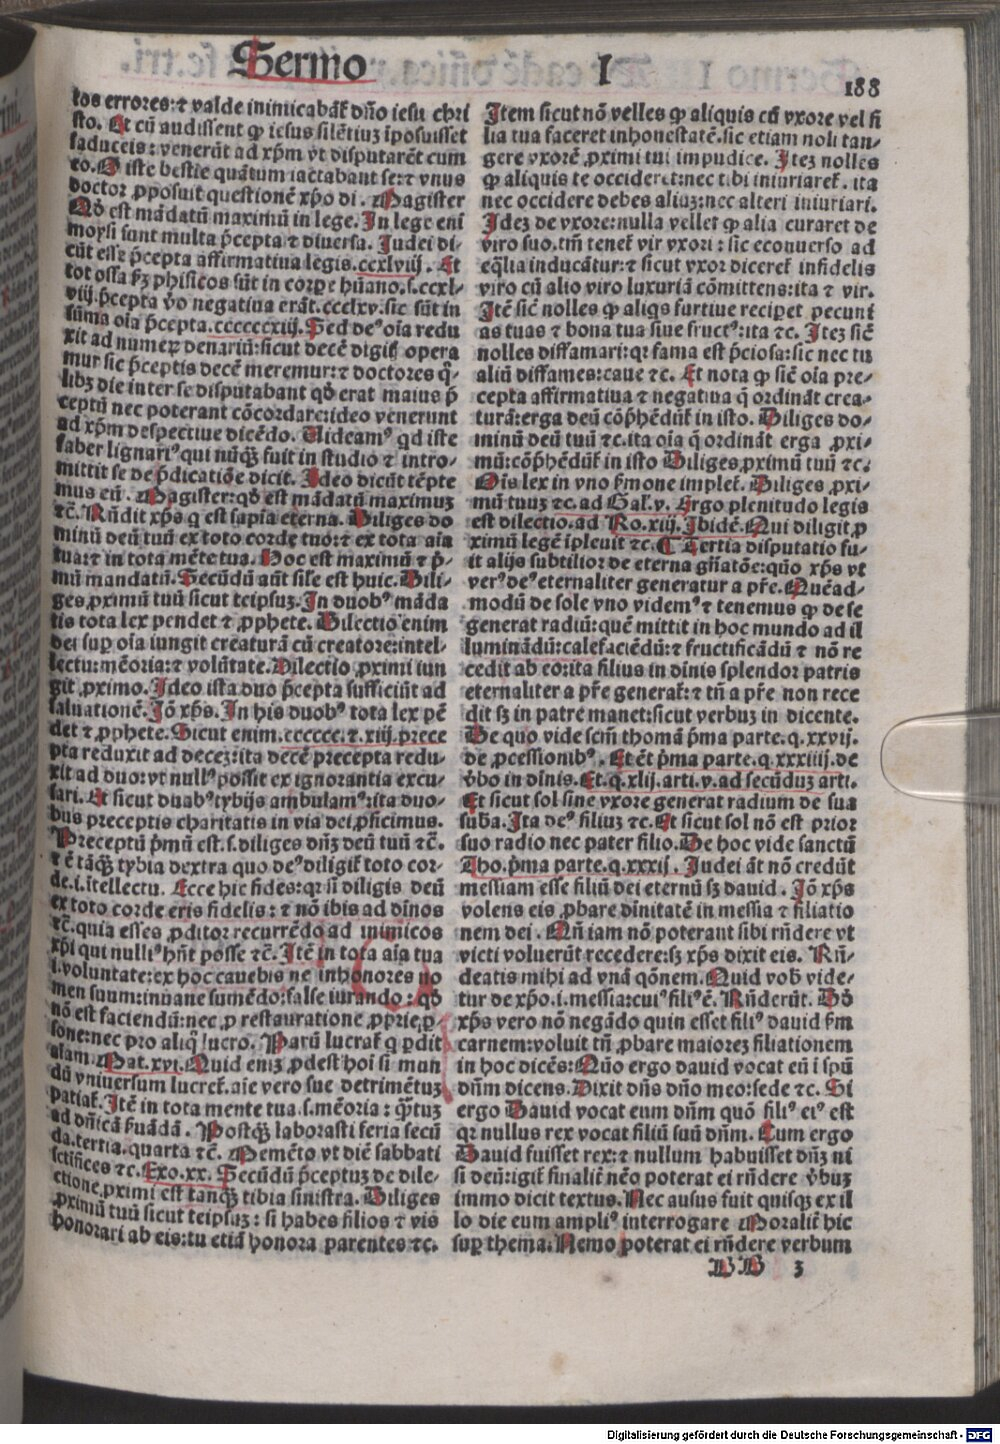 Sermo I
188
los errores: ⁊ valde inimicabāt͛ dn̄o iesu chri
sto. Et cū audissent ꝙ iesus silētiuꝫ īposuisset
saduceis: venerūt ad xp̄m vt disputarēt cum
eo. O iste bestie quātum iactabant se: ⁊ vnus
doctor ꝓposuit questionē xp̄o di. Magister
Qd̄ est mādatū maximū in lege. In lege eni
moysi sunt multa p̄cepta ⁊ diuersa. Iudei di-
cūt esse p̄cepta affirmatiua legis.ccxlviij. Et
tot ossa ẜꝫ phisicos sūt in corpe hūano.s.ccxl-
viij.p̄cepta v̄o negatiua erāt.ccclxv.sic sūt in
sūma oīa p̄cepta.ccccccxiij. Sed deꝰ oīa redu
xit ad numeꝝ denariū: sicut decē digiti opera
mur sic p̄ceptis decē meremur: ⁊ doctores q̄-
libꝫ die inter se disputabant qd̄ erat maius p̄
ceptū nec poterant cōcordare: ideo venerunt
ad xp̄m despectiue dicēdo. Uideamꝰ qd iste
faber lignariꝰ qui nūqꝫ fuit in studio ⁊ intro-
mittit se de p̄dicatiōe dicit. Ideo dicūt tēpte
mus eū. Magister: qd̄ est mādatū maximuꝫ
⁊c̄. Rn̄dit xp̄s q est sapīa eterna. Diliges do
minū deū tuū ex toto corde tuo: ⁊ ex tota aīa
tua: ⁊ in tota mēte tua. Hoc est maximū ⁊ p̄-
mū mandatū. Secūdū aūt sile est huic. Dili-
ges ꝓximū tuū sicut teipsuꝫ. In duobꝰ māda
tis tota lex pendet ⁊ ꝓphete. Dilectio enim
dei suꝑ oīa iungit creaturā cū creatore: intel-
lectu: mēoria: ⁊ volūtate. Dilectio ꝓximi iun
git ꝓximo. Ideo ista duo p̄cepta sufficiūt ad
saluationē. Iō xp̄s. In his duobꝰ tota lex pē
det ⁊ ꝓphete. Sicut enim.cccccc.⁊.xiij.prece
pta reduxit ad deceꝫ: ita decē precepta redu-
xit ad duo: vt nullꝰ possit ex ignorantia excu-
sari. Et sicut duabꝰ tybijs ambulamꝰ: ita duo-
bus preceptis charitatis in via dei ꝓficimus.
Preceptū p̄mū est.s.diliges dn̄ꝫ deū tuū ⁊c̄.
⁊ ē tāqꝫ tybia dextra quo deꝰ diligit͛ toto cor-
de.i.ītellectu. Ecce hic fides: qꝛ si diligis deū
ex toto corde eris fidelis: ⁊ nō ibis ad dīnos
⁊c̄.quia esses ꝓditor recurrēdo ad inimicos
xp̄i qui nulliꝰ hn̄t posse ⁊c̄. Itē in tota aīa tua
.i.voluntate: ex hoc cauebis ne inhonores no
men suum: inuane sumēdo: false iurando: qd̄
nō est faciendū: nec ꝓ restauratione ꝓprie ꝑ-
sone: nec pro aliq̄ lucro. Parū lucrat͛ q ꝑdit
aīam. Mat.xvi. Quid eniꝫ ꝓdest hoī si mun
dū vniuersum lucret͛.aīe vero sue detrimētuꝫ
patiat͛. Itē in tota mente tua.s.mēoria: q̄tuꝫ
ad dn̄icā ẜuādā. Postqꝫ laborasti feria secū
da.tertia.quarta ⁊c̄. Memēto vt diē sabbati
sctifices ⁊c. Exo.xx. Secūdū p̄ceptuꝫ de dile-
ctione ꝓximi est tanqꝫ tibia sinistra. Diliges
ꝓximū tuū sicut teipsuꝫ: si habes filios ⁊ vis
honorari ab eis: tu etiā honora parentes ⁊c.
Item sicut nō velles ꝙ aliquis cū vxore vel fi
lia tua faceret inhonestatē.sic etiam noli tan-
gere vxorē ꝓximi tui impudice. Iteꝫ nolles
ꝙ aliquis te occideret: nec tibi iniuriaret͛. ita
nec occidere debes aliuꝫ: nec alteri iniuriari.
Ideꝫ de vxore: nulla vellet ꝙ alia curaret de
viro suo.tm̄ tenet͛ vir vxori: sic econuerso ad
eq̄lia inducātur: ⁊ sicut vxor diceret͛ infidelis
viro cū alio viro luxuriā cōmittens: ita ⁊ vir.
Itē sic̄ nolles ꝙ aliqs furtiue reciꝑet pecuni
as tuas ⁊ bona tua siue fructꝰ: ita ⁊c. Iteꝫ sic̄
nolles diffamari: qꝛ fama est p̄ciosa: sic nec tu
aliū diffames: caue ⁊c. Et nota ꝙ sic̄ oīa pre-
cepta affirmatiua ⁊ negatiua q̄ ordināt crea-
turā: erga deū cōp̄hēdūt͛ in isto. Diliges do-
minū deū tuū ⁊c.ita oīa q̄ ordināt erga ꝓxi-
mū: cōp̄hēdūt͛ in isto Diliges ꝓximū tuū ⁊c.
Oīs lex in vno ẜmone implet͛. Diliges ꝓxi-
mū tuuꝫ ⁊c.ad Gal.v. Ergo plenitudo legis
est dilectio.ad Ro.xiij. Ibidē. Qui diligit ꝓ
ximū legē īpleuit ⁊c. ¶ Tertia disputatio fu-
it alijs subtilior de eterna gn̄atōe: quō xp̄s vt
verꝰ deꝰ eternaliter generatur a p̄re. Quēad-
modū de sole vno videmꝰ ⁊ tenemus ꝙ de se
generat radiū: quē mittit in hoc mundo ad il
luminādū: calefaciēdū: ⁊ fructificādū ⁊ nō re
cedit ab eo: ita filius in dīnis splendor patris
eternaliter a p̄re generat͛: ⁊ tn̄ a p̄re non rece
dit sꝫ in patre manet: sicut verbuꝫ in dicente.
De quo vide scm̄ thomā p̄ma parte.q.xxvij.
de ꝓcessionibꝰ. Et ēt p̄ma parte.q.xxxiiij.de
v̄bo in dīnis. Et.q.xlij.arti.v.ad secūduꝫ arti.
Et sicut sol sine vxore generat radium de sua
suba. Ita deꝰ filiuꝫ ⁊c. Et sicut sol nō est prior
suo radio nec pater filio. De hoc vide sanctū
Tho.p̄ma parte.q.xxxij. Iudei āt nō credūt
messiam esse filiū dei eternū sꝫ dauid. Iō xp̄s
volens eis ꝓbare dīnitatē in messia ⁊ filiatio
nem dei. Nn̄ iam nō poterant sibi rn̄dere vt
victi voluerūt recedere: sꝫ xp̄s dixit eis. Rn̄-
deatis mihi ad vnā qōnem. Quid vob vide-
tur de xp̄o.i.messia: cuiꝰ filiꝰ ē. Rn̄derūt. Dd̄
xp̄s vero nō negādo quin esset filiꝰ dauid ẜm
carnem: voluit tn̄ ꝓbare maioreꝫ filiationem
in hoc dicēs: Quō ergo dauid vocat eū ī spū
dn̄m dicens. Dixit dn̄s dn̄o meo: sede ⁊c. Si
ergo Dauid vocat eum dn̄m quō filiꝰ eiꝰ est
qꝛ nullus rex vocat filiū suū dn̄m. Cum ergo
Dauid fuisset rex: ⁊ nullum habuisset dn̄ꝫ ni
si deū: igit͛ finalit͛ nēo poterat ei rn̄dere v̄buꝫ
immo dicit textus. Nec ausus fuit quisqꝫ ex il
lo die eum ampliꝰ interrogare Moralit͛ hic
suꝑ thema. Nemo poterat ei rn̄dere verbum
BB 3
Digitalisierung gefördert durch die Deutsche Forschungsgemeinschaft - DFG